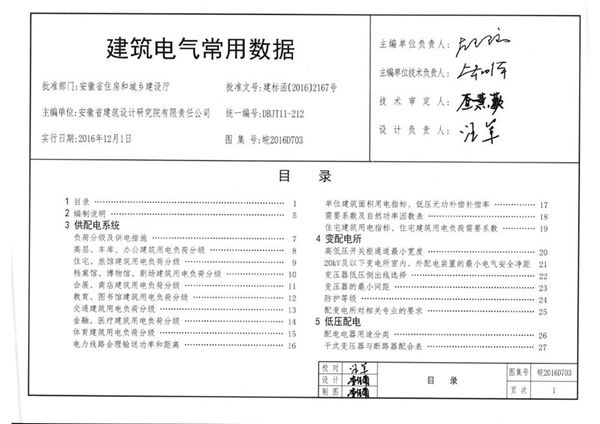 建筑电气常用数据
批准部门:安徽省住房和城乡建设厅 批准文号:建标函[2016]2167号
主编单位:安徽省建筑设计研究院有限责任公司 统一编号:DBJT11-212
实行日期:2016年12月1日 图 集 号:皖2016D703
主编单位负责人:
主编单位技术负责人:
技 术 审 定 人:
设 计 负 责 人:
目 录
1 目录 1
2 编制说明 5
3 供配电系统
负荷分级及供电措施 7
高层、车库、办公建筑用电负荷分级 8
住宅、旅馆建筑用电负荷分级 9
档案馆、博物馆、剧场建筑用电负荷分级 10
会展、商店建筑用电负荷分级 11
教育、图书馆建筑用电负荷分级 12
交通建筑用电负荷分级 13
金融、医疗建筑用电负荷分级 14
体育建筑用电负荷分级 15
电力线路合理输送功率和距离 16
单位建筑面积用电指标、低压无功补偿补偿率 17
需要系数及自然功率因数表 18
住宅建筑用电指标、住宅建筑用电负荷需要系数 19
4 变配电所
高低压开关柜通道最小宽度 20
20kV及以下变电所室内、外配电装置的最小电气安全净距 21
变压器低压侧出线选择 22
变压器的最小间距 23
防护等级 24
配变电所对相关专业的要求 25
5 低压配电
配电电器用途分类 26
干式变压器与断路器配合表 27
校 对
设 计
制 图
目 录
图集号 皖2016D703
页 次 1